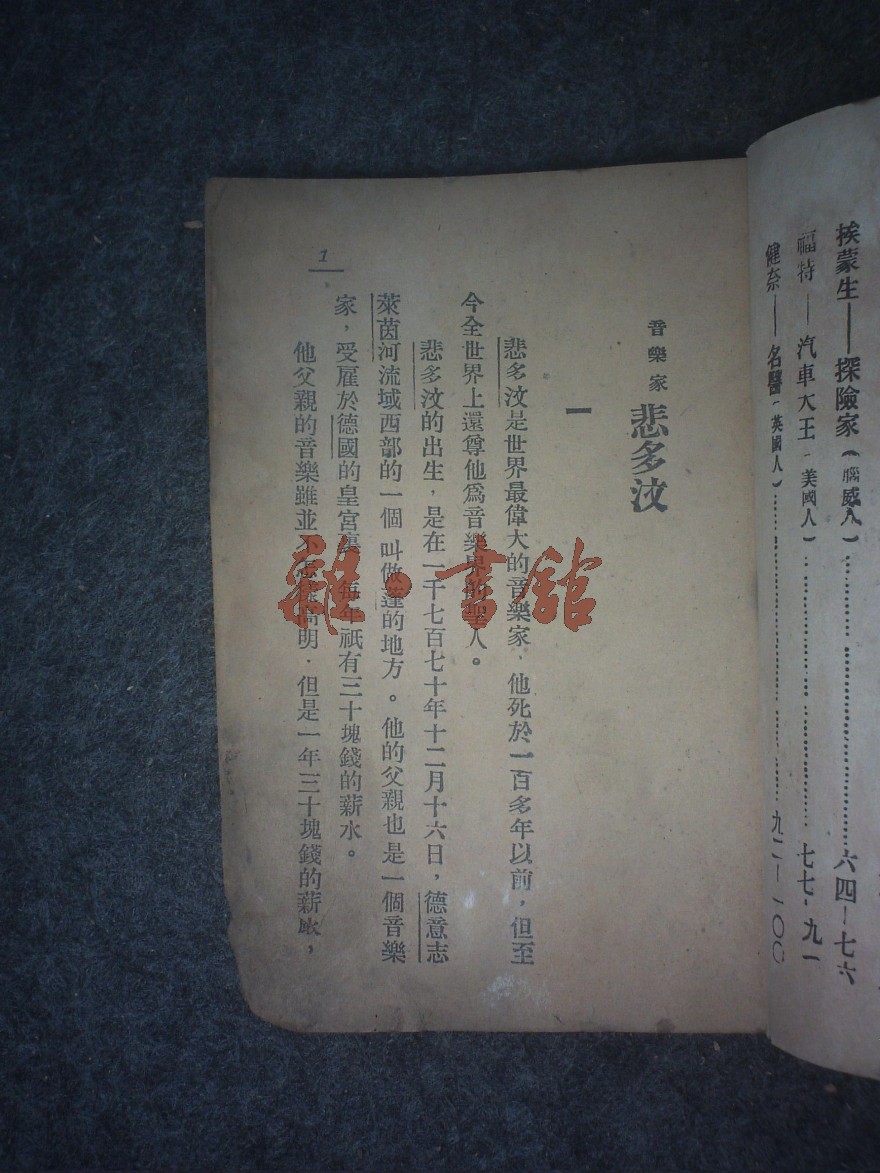 挨蒙生——探險家(腦威人)……六四—七六
福特——汽車大王(美國人)……七七·九一
健奈——名醫(英國人)……九二—一〇〇
音樂家 悲多汶
一
悲多汶是世界最偉大的音樂家、他死於一百多年以前,但至
今全世界上還尊他爲音樂界的聖人。
悲多汶的出生,是在一千七百七十年十二月十六日,德意志
萊茵河流域西部的一個叫做蓬的地方。他的父親也是一個音樂
家,受雇於德國的皇宮裏 每年祇有三十塊錢的薪水。
他父親的音樂雖並不高明.但是一年三十塊錢的薪水,
1
雜·書館